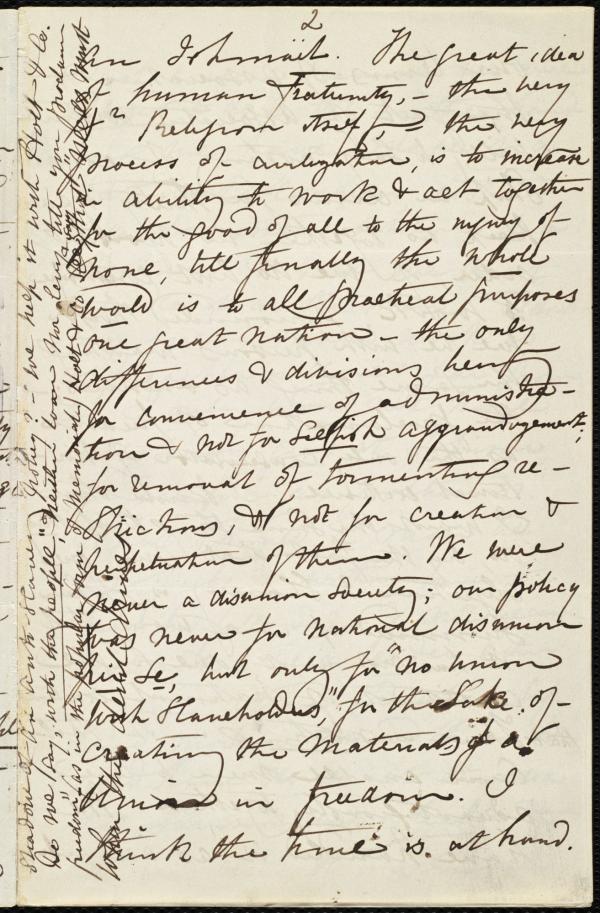 2
an Ishmäel. The great idea
of human Fraternity, – the very
Religion itself, – the very
process of civilization, is to increase
in ability to work & act together
for the good of all to the injury of
none, till finally the whole
world is to all practical purposes
one great nation – the only
differences & divisions being
for convenience of administra-
tion & not for selfish aggrandizement;
for removal of tormenting re-
strictions, & not for creation &
perpetuation of them. We were
never a disunion society; our policy
was never for national disunion
per se, but only for "no union
with Slaveholders," for the sake of
creating the materials of a
Union in freedom. I
think the time is at hand.
shadow of an anti Slavery policy? – we help it with Holt & Co.
So we say, with the people "Neither war nor Lewis till you proclaim
freedom" as in the popular form of memorial, Holt & Co